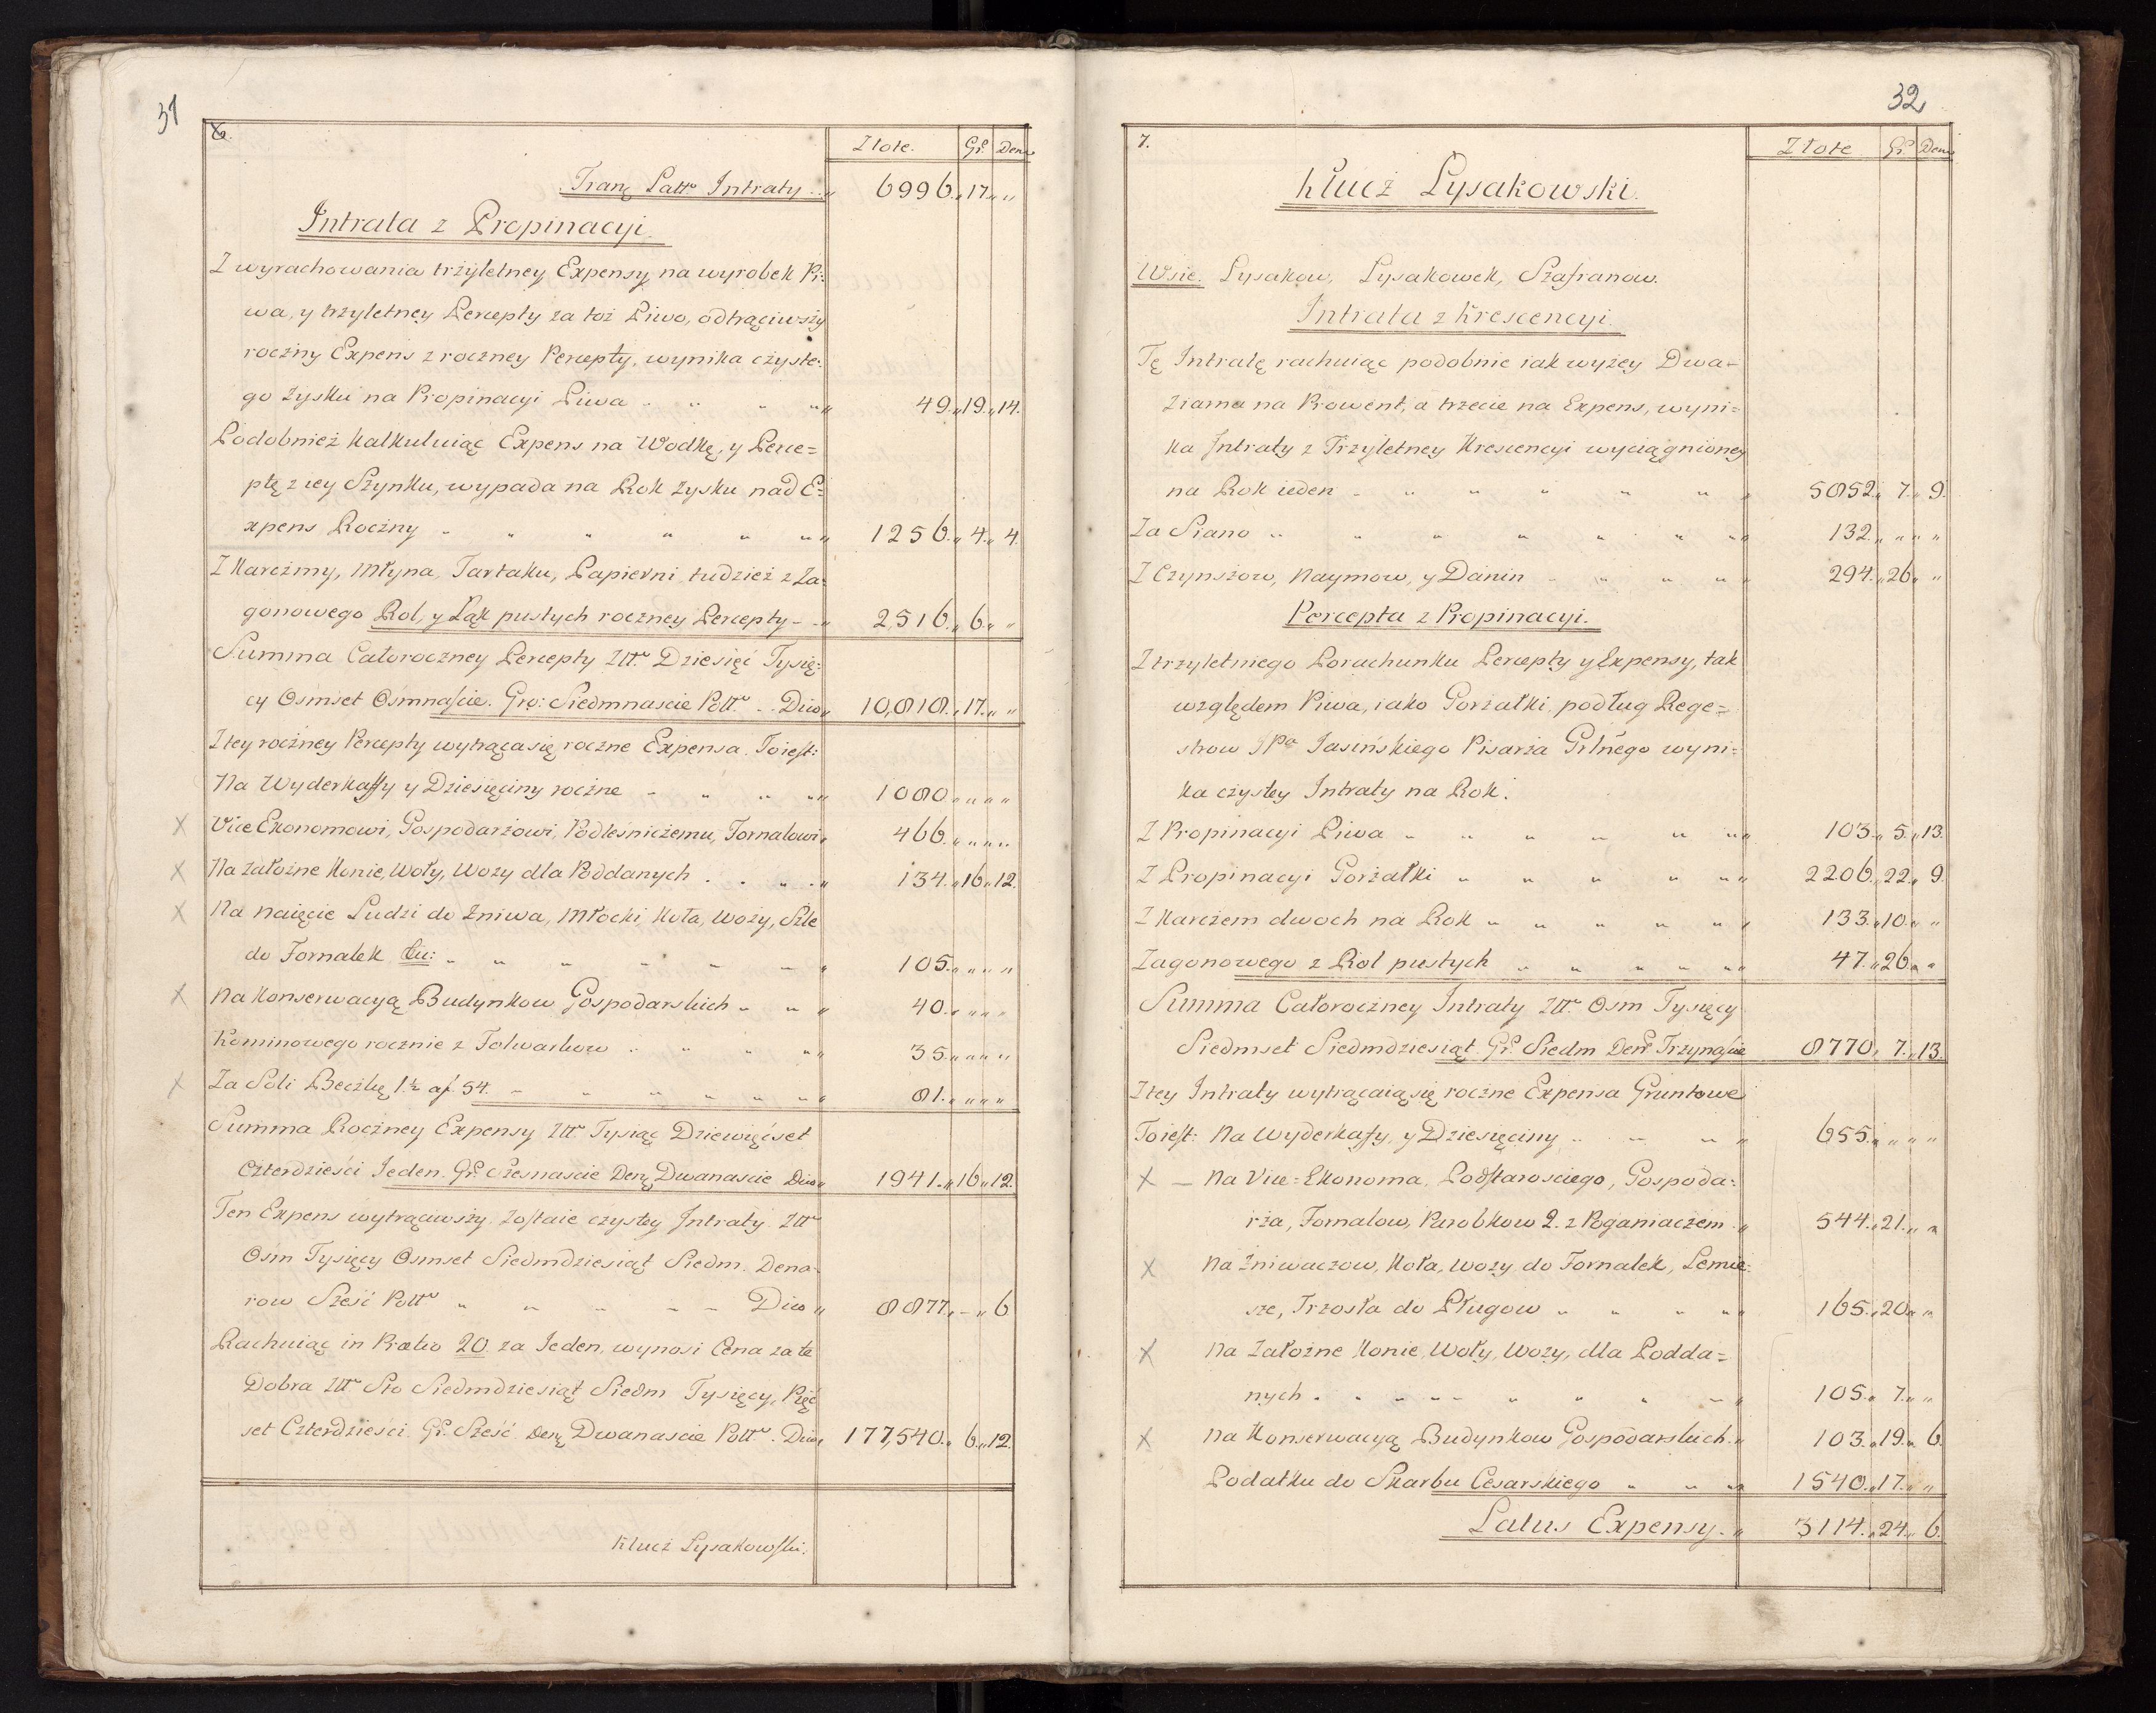 31
6.
Złote. Gr. Den.
Tranz Latt. Intraty 6996. 17. „
Intrata z Propinacyi.
Z wyrachowania trzyletney Expensy na wyrobek Pi:
wa, y trzyletney Percepty za toż Piwo, odtrąciwszy
roczny Expens z roczney Percepty, wynika czyste:
go zysku na Propinacyi Piwa 49. 19. 14.
Podobnież kalkuluiąc Expens na Wodkę, y Perce=
ptę z iey Szynku, wypada na Rok zysku nad E=
xpens Roczny 1256. 4. 4.
Z Karczmy, Młyna, Tartaku, Papierni tudzież z Za:
gonowego Rol, y Łąk pustych roczney Percepty 2516. 6. „
Summa Całoroczney Percepty Ztt. Dziesięć Tysię:
cy Osmset Osmnaście. Gro: Siedmnascie Polt. Dico 10,818. 17. „
Z tey roczney Percepty wytrąca się roczne Expensa. Toiest:
Na Wyderkaffy y Dziesięciny roczne 1080. „ „
X Vice Ekonomowi, Gospodarzowi, Podleśniczemu, Fornalowi 466. „ „
X Na załozne Konie, Woły, Wozy dla Poddanych 134. 16. 12.
X Na naięcie Ludzi do Żniwa, Młocki, Koła, Wozy, Szle
do Fornalek &c: 105. „ „
X Na Konserwacyą Budynkow Gospodarskich 40. „ „
Kominowego rocznie z Folwarkow 35. „ „
X Za Soli Beczkę 1½ af. 54. 81. „ „
Summa Roczney Expensy Ztt. Tysiąc Dziewięćset
Czterdzieści Jeden. Gr. Szesnascie Den. Dwanascie Dico 1941. 16. 12.
Ten Expens wytrąciwszy zostaie czystey Intraty Ztt.
Osm Tysięcy Osmset Siedmdziesiąt Siedm. Dena-
row Sześć Polt. Dico 8877. – 6
Rachuiąc in Pretio 20 za Jeden, wynosi Cena za te
Dobra Ztt. Sto Siedmdziesiąt Siedm Tysięcy, Pięć
set Czterdzieści Gr. Sześć Den. Dwanascie Polt. Dico 177,540. 6. 12.
Klucz Lysakowski.
32
7.
Złote Gr. Den.
Klucz Lysakowski.
Wsie. Lysakow, Lysakowek, Szafranow.
Intrata z Krescencyi.
Tę Intratę rachuiąc podobnie iak wyżey Dwa-
Ziarna na Prowent, a trzecie na Expens, wyni=
ka Intraty z Trzyletney Krescencyi wyciągnioney
na Rok ieden 5852. 7. 9.
Za Siano 132. „ „
Z Czynszow, Naymow, y Danin 294. 26. „
Percepta z Propinacyi.
Z trzyletniego Porachunku Percepty y Expensy, tak
względem Piwa, iako Gorzałki, podług Rege=
strow JPa Jasińskiego Pisarza Grlnego wyni=
ka czystey Intraty na Rok.
Z Propinacyi Piwa 103. 5. 13.
Z Propinacyi Gorzałki 2206. 22. 9.
Z Karczem dwoch na Rok 133. 10. „
Zagonowego z Rol pustych 47. 26. „
Summa Całoroczney Intraty Ztt. Osm Tysięcy
Siedmset Siedmdziesiąt. Gr. Siedm Den. Trzynaście 8770. 7. 13.
Z tey Intraty wytrącaią się roczne Expensa Gruntowe
Toiest: Na Wyderkaffy, y Dziesięciny 655. „ „
X — Na Vice=Ekonoma, Podstarosciego, Gospoda:
rza, Fornalow, Parobkow 2. z Poganiaczem 544. 21. „
X Na Żniwaczow, Koła, Wozy do Fornalek, Lemie:
sze, Trzosła do Pługow 165. 20. „
X Na Załozne Konie, Woły, Wozy, dla Podda=
nych 105. 7. „
X Na Konserwacyą Budynkow Gospodarskich 103. 19. 6.
Podatku do Skarbu Cesarskiego 1540. 17. „
Latus Expensy. 3114. 24. 6.